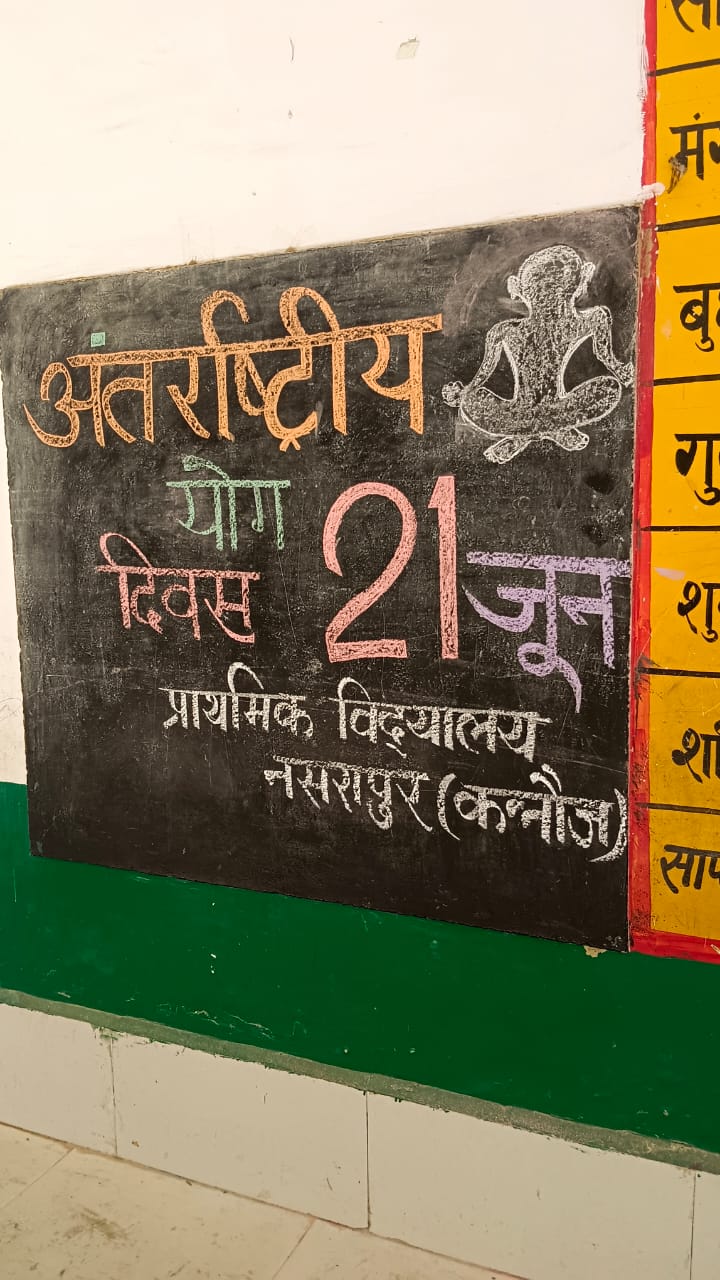 अंतर्राष्ट्रीय
योग
दिवस 21 जून
प्राथमिक विद्यालय
नसरापुर (कन्नौज)